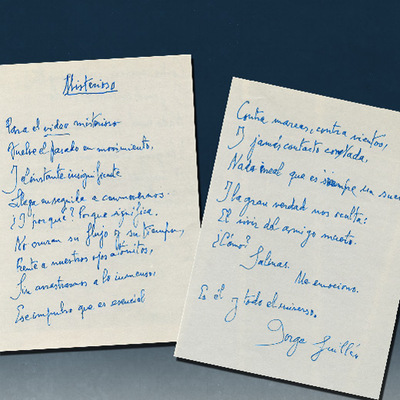 Misterioso
Para el video misterioso
Vuelve el pasado en movimiento,
Y el instante insignificante
Llega en seguida a conmovernos.
¿Y por qué? Porque significa.
No cursan su flujo y su tiempo,
Frente a nuestros ojos atónitos,
Sin arrastrarnos a lo inmenso,
Ese impulso que es esencial
Contra mareas, contra vientos,
Y jamás contacto con nada.
Nada irreal que es siempre un sue
Y la gran verdad nos oculta:
El vivir del amigo muerto.
¿Cómo?
Salinas.
Me emociono.
Es él y todo el universo.
Jorge Guillén